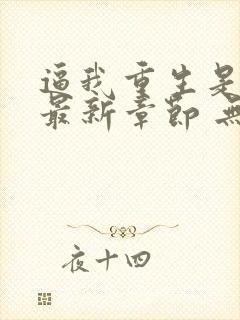 逼我重生是
最新章節 無
夜十四